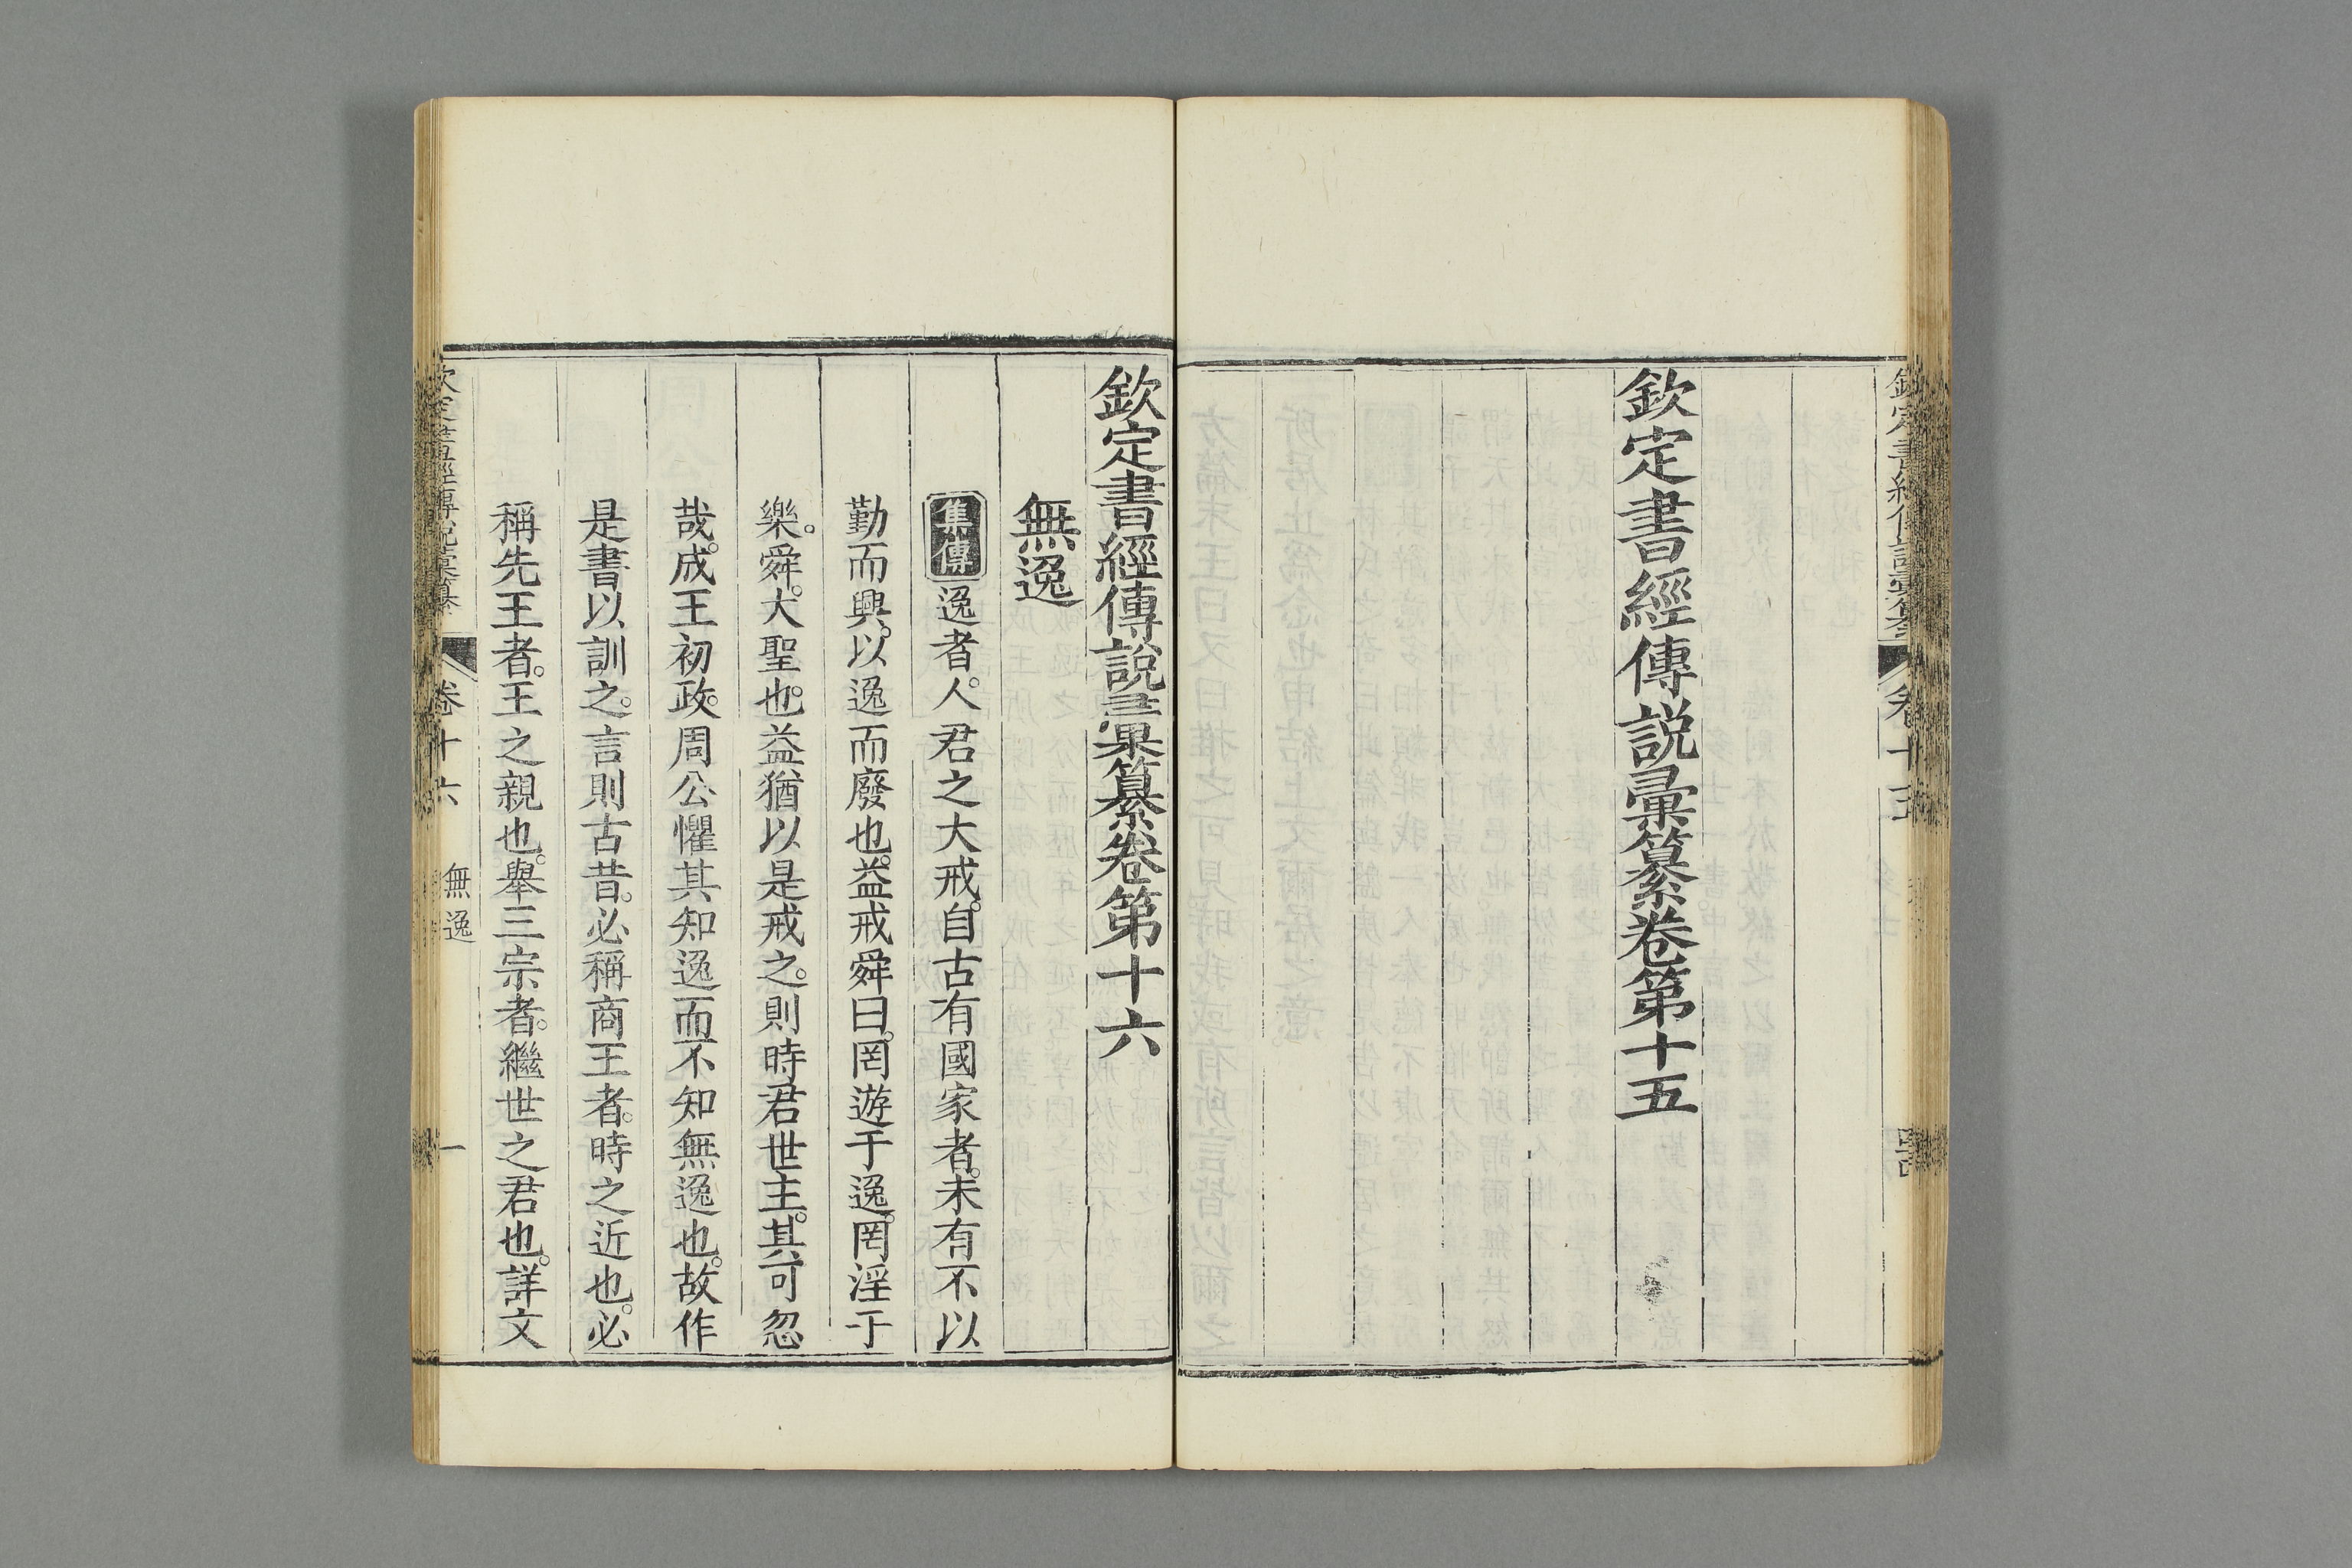 欽定書經傳說彙纂
欽定書經傳說彙纂卷第十五
欽定書經傳說彙纂卷第十六
無逸
集傳 逸者。人君之大戒。自古有國家者。未有不以
勤而興。以逸而廢也。益戒舜曰。罔遊于逸。罔淫于
樂。舜。大聖也。益猶以是戒之。則時君世主。其可忽
哉。成王初政。周公懼其知逸而不知無逸也。故作
是書以訓之。言則古昔。必稱商王者。時之近也。必
稱先王者。王之親也。舉三宗者。繼世之君也。詳文
欽定書經傳說彙纂 卷十六 無逸 一